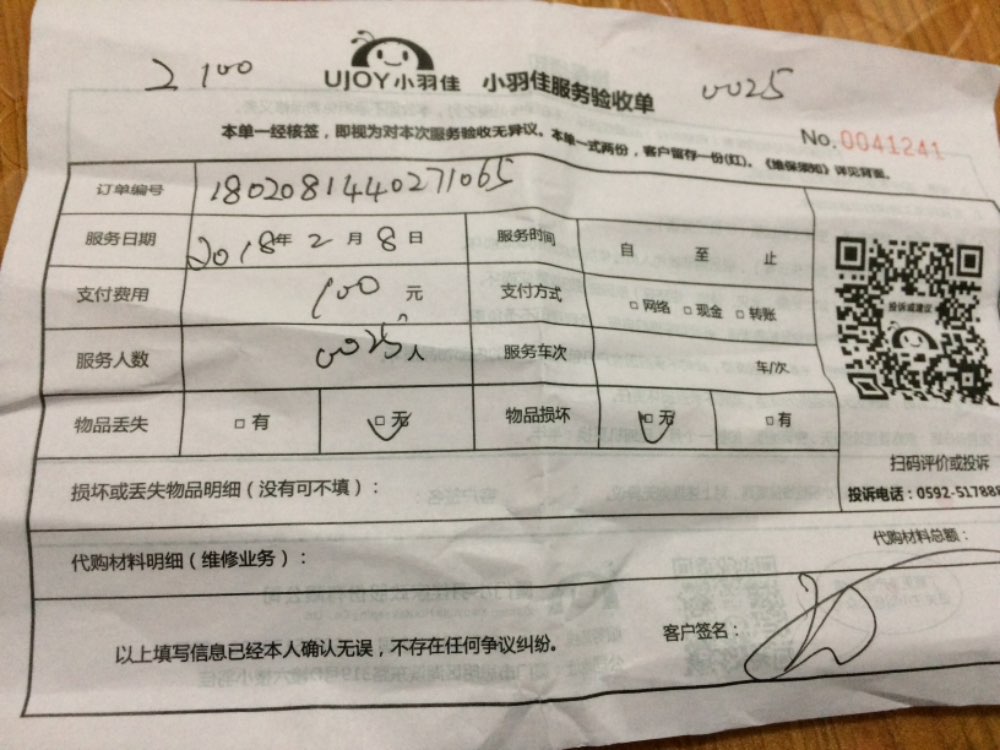 2 100
UJOY小羽佳 小羽佳服务验收单
0025
本单一经核签，即视为对本次服务验收无异议。本单一式两份，客户留存一份(红)。《维保须知》详见背面。
No.0041241
订单编号 1802081440271065
服务日期 2018年2月8日 服务时间 自 至 止
支付费用 100 元 支付方式 □网络 □现金 □转账
服务人数 0025人 服务车次 车/次
投诉或建议
物品丢失 □有 □无 物品损坏 □无 □有
扫码评价或投诉
损坏或丢失物品明细（没有可不填）：
投诉电话：0592-517888
代购材料明细（维修业务）：
代购材料总额：
以上填写信息已经本人确认无误，不存在任何争议纠纷。
客户签名：